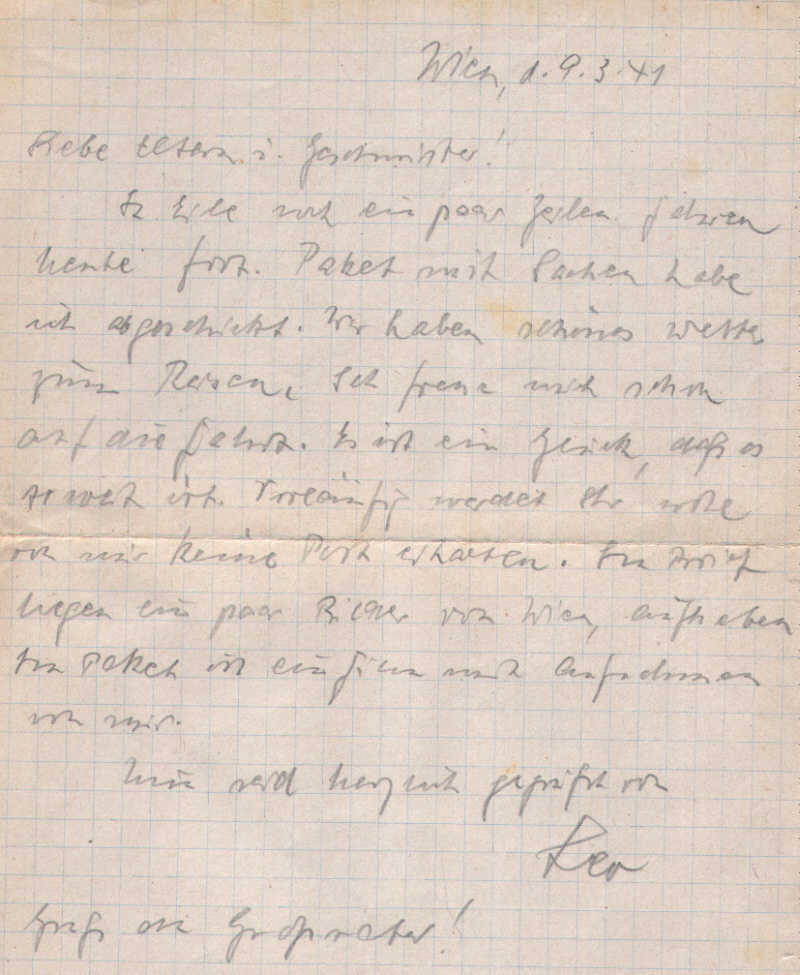 Wien, d. 9.3.41
Liebe Eltern u. Geschwister!
In Eile noch ein paar Zeilen. Fahren
heute fort. Paket mit Sachen habe
ich abgeschickt. Wir haben schönes Wetter
zum Reisen. Ich freue mich schon
auf die Fahrt. Es ist ein Glück, daß es
so weit ist. Vorläufig werdet Ihr wohl
von mir keine Post erhalten. Im Brief
liegen ein paar Bilder von Wien, aufheben
Im Paket ist ein Film mit Aufnahmen
von mir.
Nun seid herzlich gegrüßt von
Leo
Gruß an Großvater!